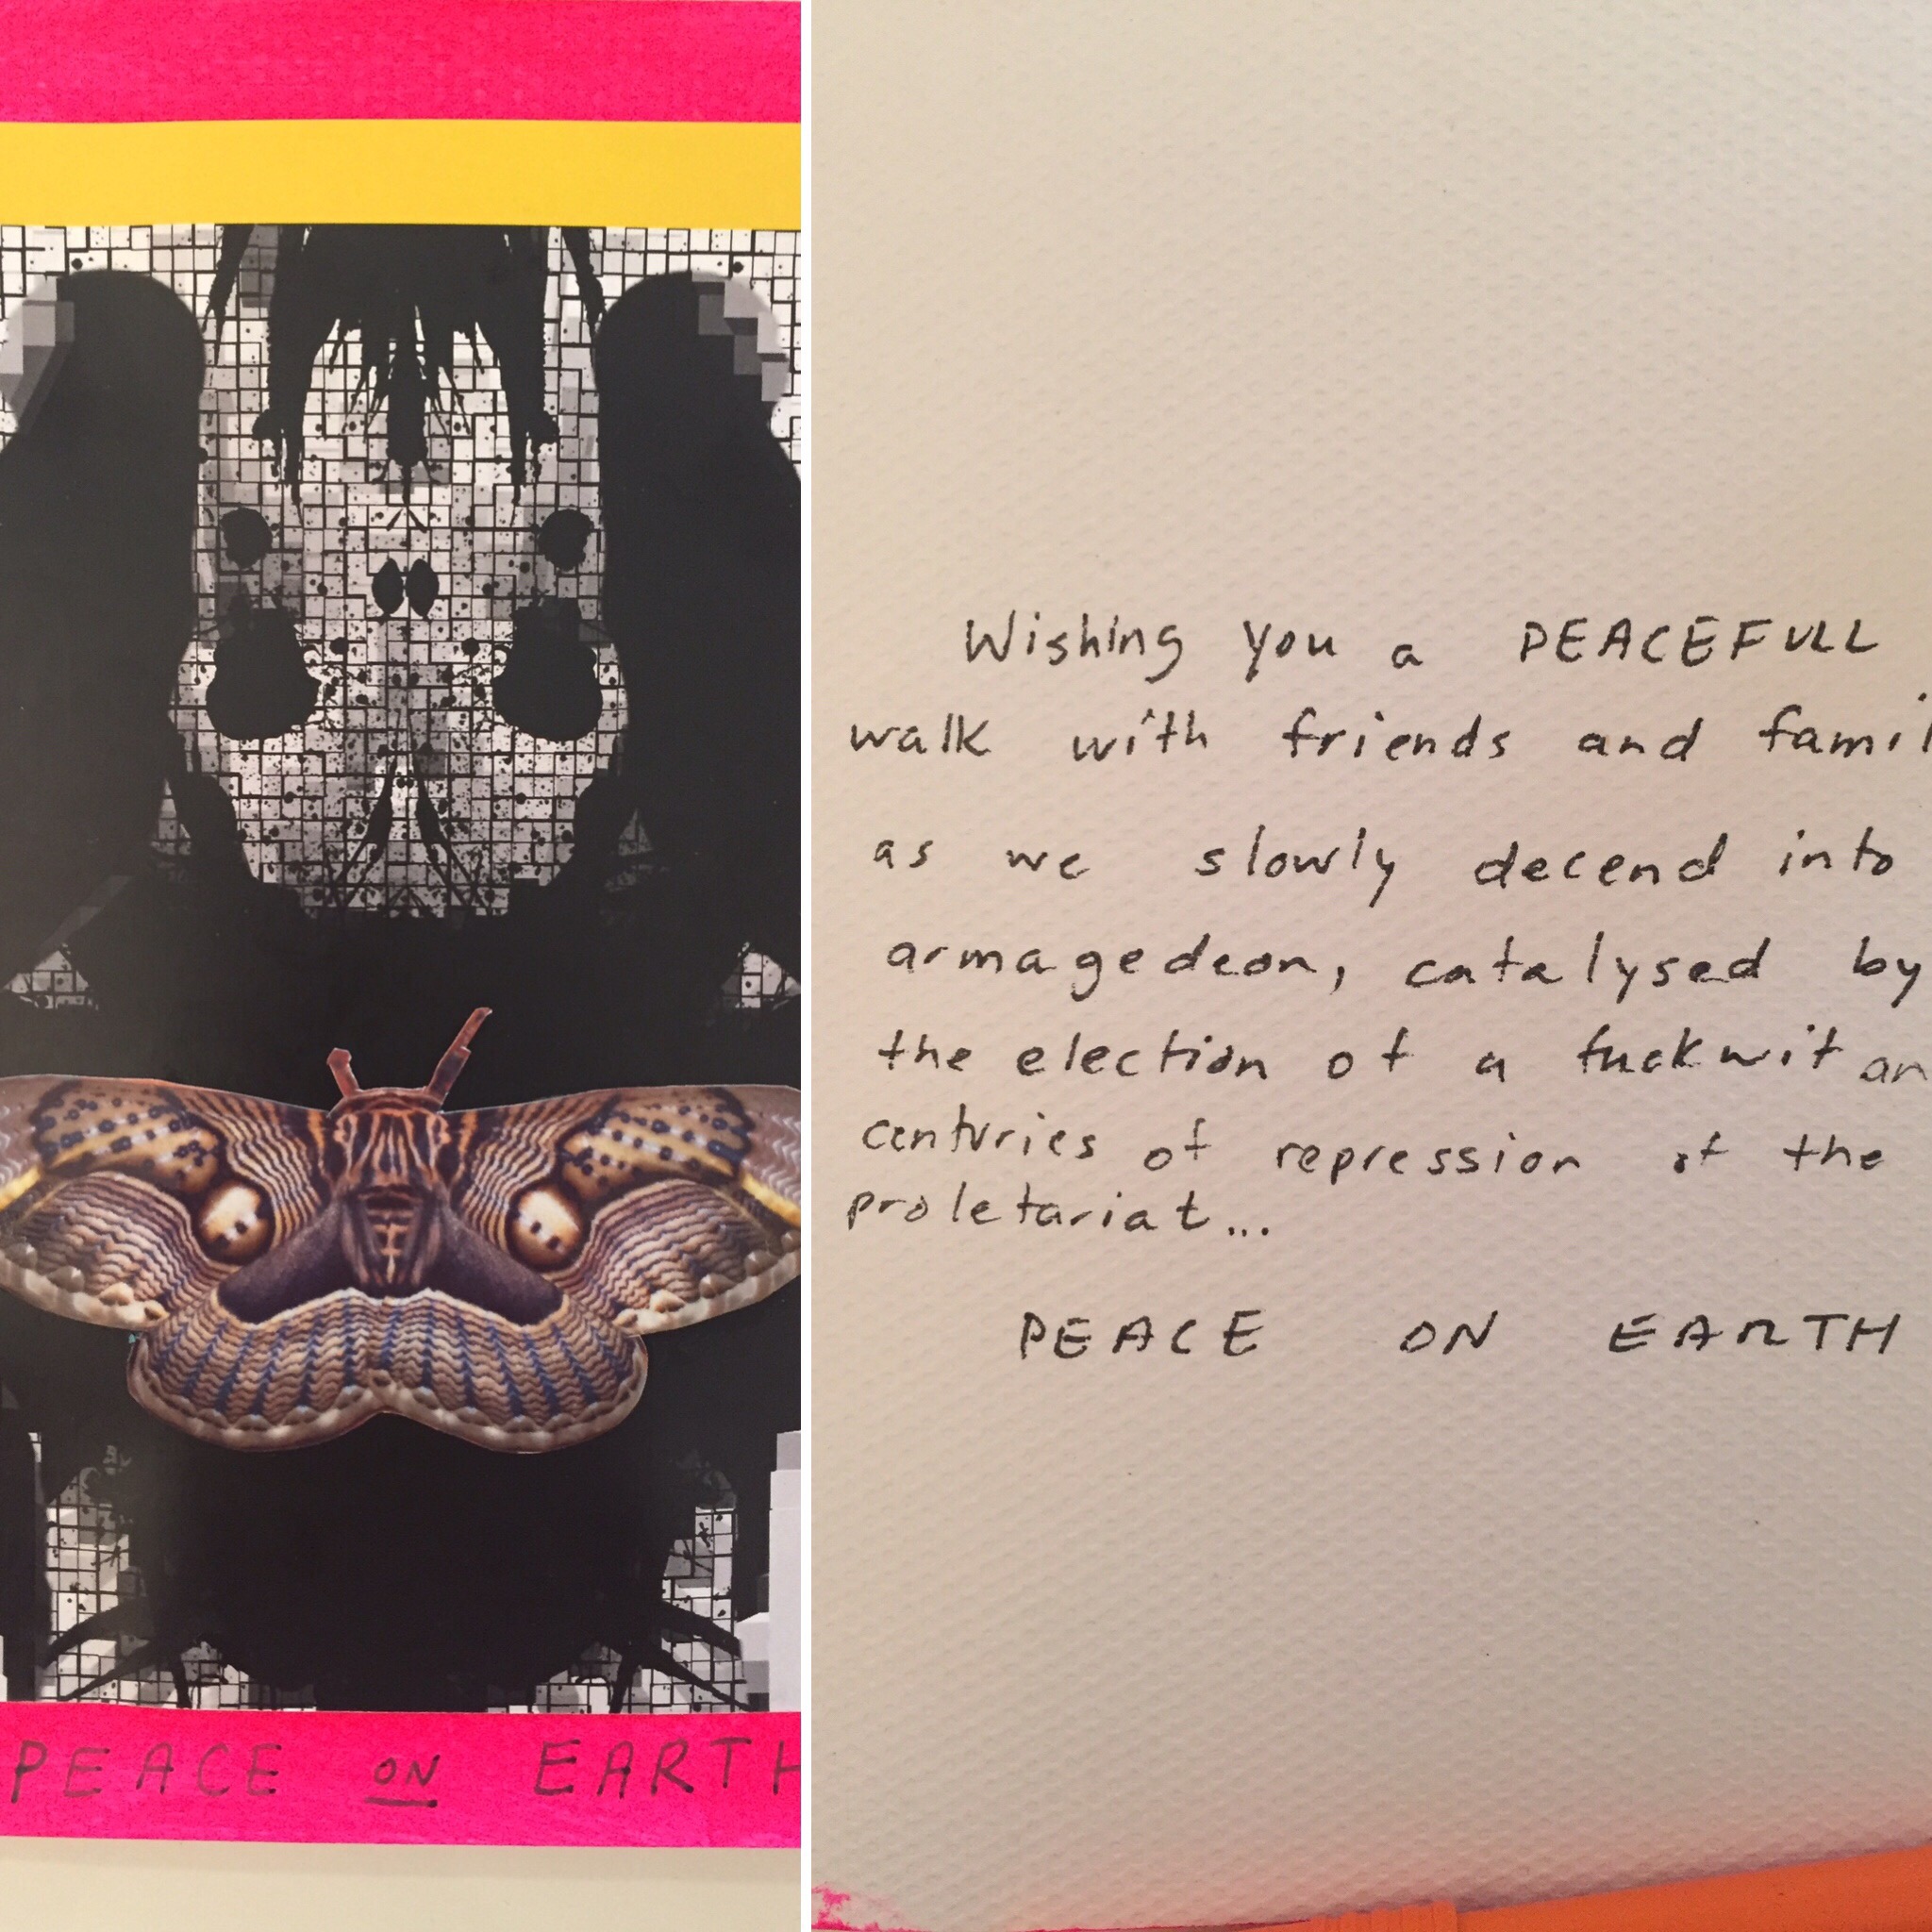 PEACE ON EARTH
Wishing you a PEACEFULL
walk with friends and famil
as we slowly decend into
armagedeon, catalysed by
the election of a fuckwit an
centuries of repression of the
proletariat...
PEACE ON EARTH